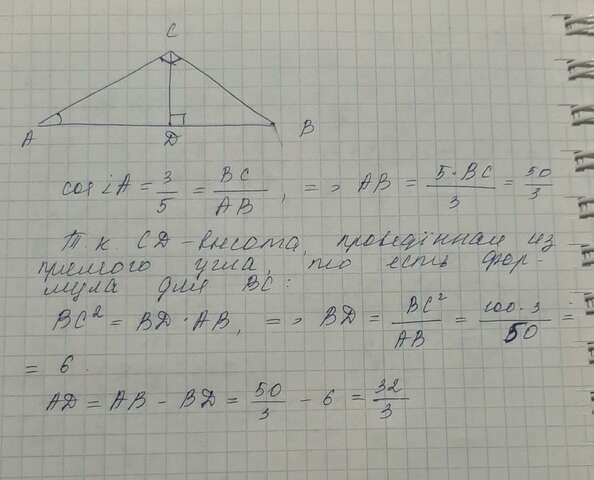 C
A
D
B
cos ∠A = 3/5 = BC/AB, => AB = 5·BC/3 = 50/3
Т.к. CD - высота, проведённая из
прямого угла, то есть фор-
мула для BC:
BC² = BD·AB, => BD = BC²/AB = 100·3/50 =
= 6.
AD = AB - BD = 50/3 - 6 = 32/3